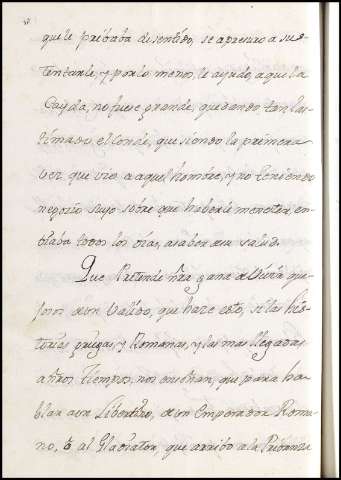 que le pribaba de sentido, se apresuro a sus-
tentarle, y por lo menos, le ayudo, a que la
Cayda, no fuese grande, quedando, tan las-
timado el Conde, que siendo la primera
vez que vio a aquel hombre, y no teniendo
negocio suyo sobre que haberle menester, en-
biaba todos los dias, a saber de su salud.
Que Pretende ñra gana de que-
josos de un Valido, que haze esto, si las his-
torias griegas, y Romanas, y las mas llegadas
a ñros tiempos, nos enseñan, que para ha-
blar a un Libertino, de un Emperador Roma-
no, o al Gladiator, que arribo a la Pribanza